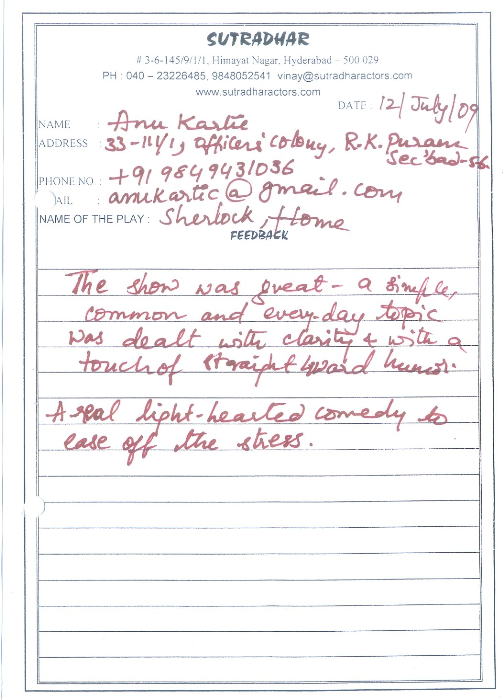 SUTRADHAR
# 3-6-145/9/1/1, Himayat Nagar, Hyderabad - 500 029
PH : 040 – 23226485, 9848052541 vinay@sutradharactors.com
www.sutradharactors.com
DATE : 12/July/09
NAME : Anu Kartic
ADDRESS : 33-111/1, Officers colony, R.K. Puram
Sec'bad-56
PHONE NO : +91 9849431036
AIL : anukartic@gmail.com
NAME OF THE PLAY : Sherlock, Home
FEEDBACK
The show was great - a simple,
common and every-day topic
was dealt with clarity & with a
touch of straight forward humor.
A real light-hearted comedy to
ease off the stress.